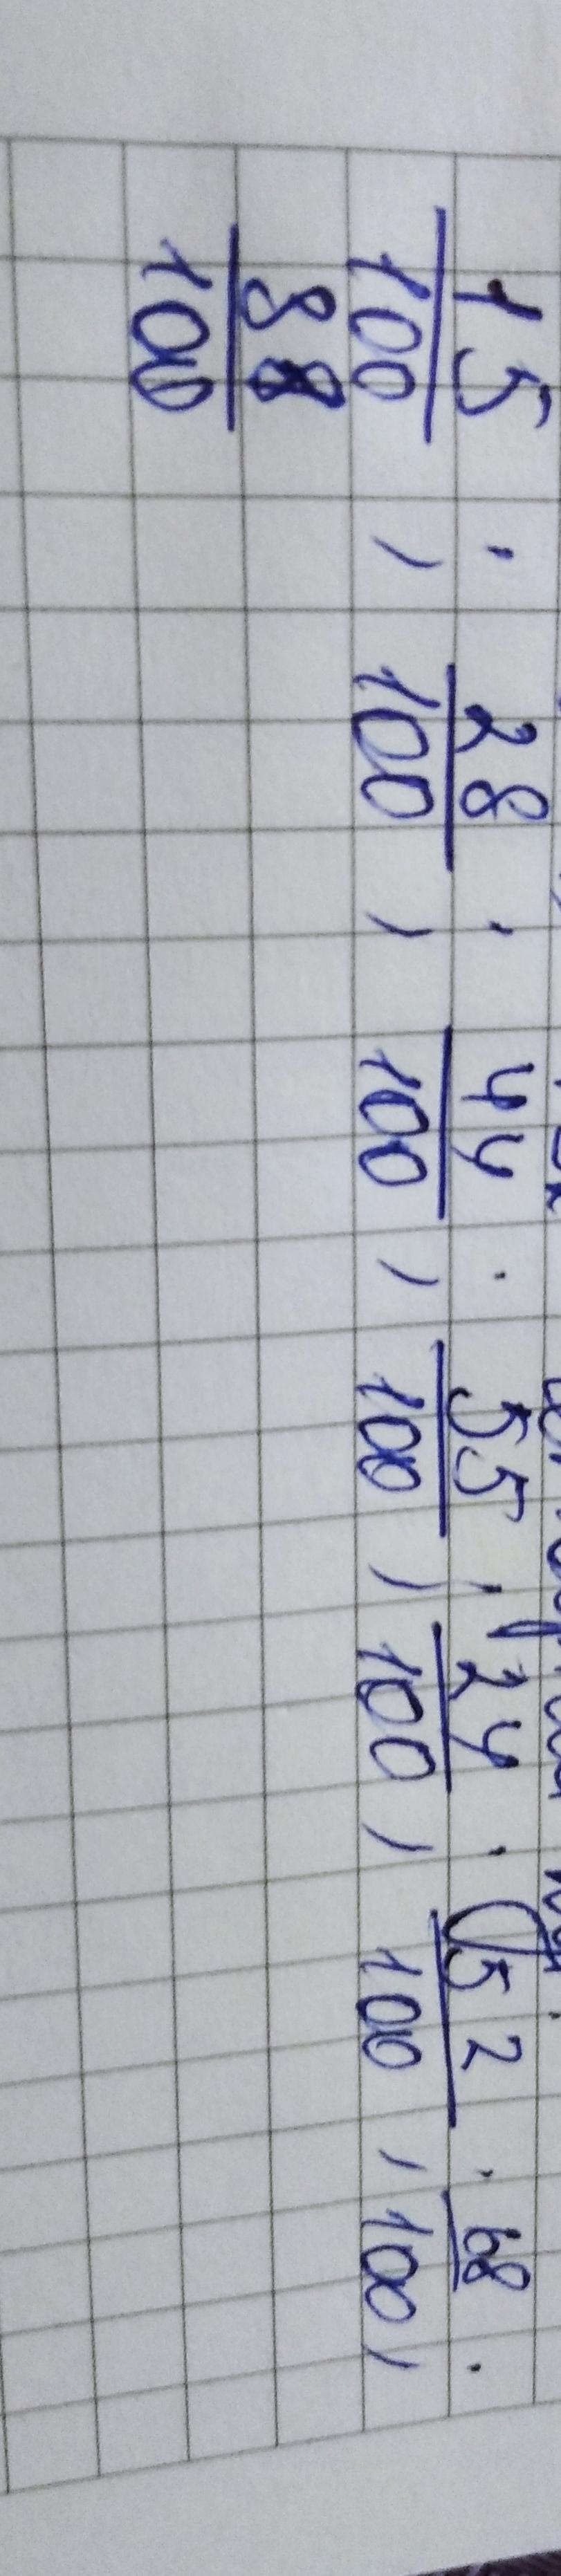 15/100 ; 28/100 ; 44/100 ; 55/100 ; 24/100 ; 52/100 ; 68/100 ;
88/100